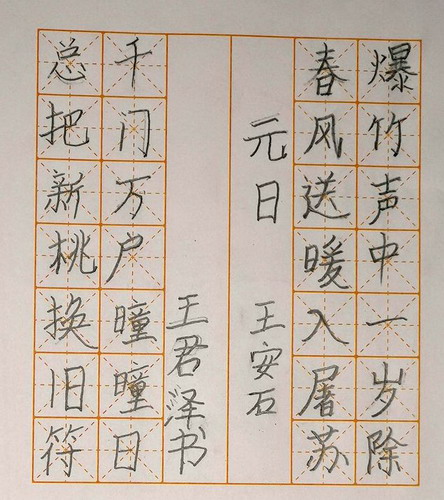 爆竹声中一岁除
春风送暖入屠苏
元日 王安石
王君泽书
千门万户曈曈日
总把新桃换旧符